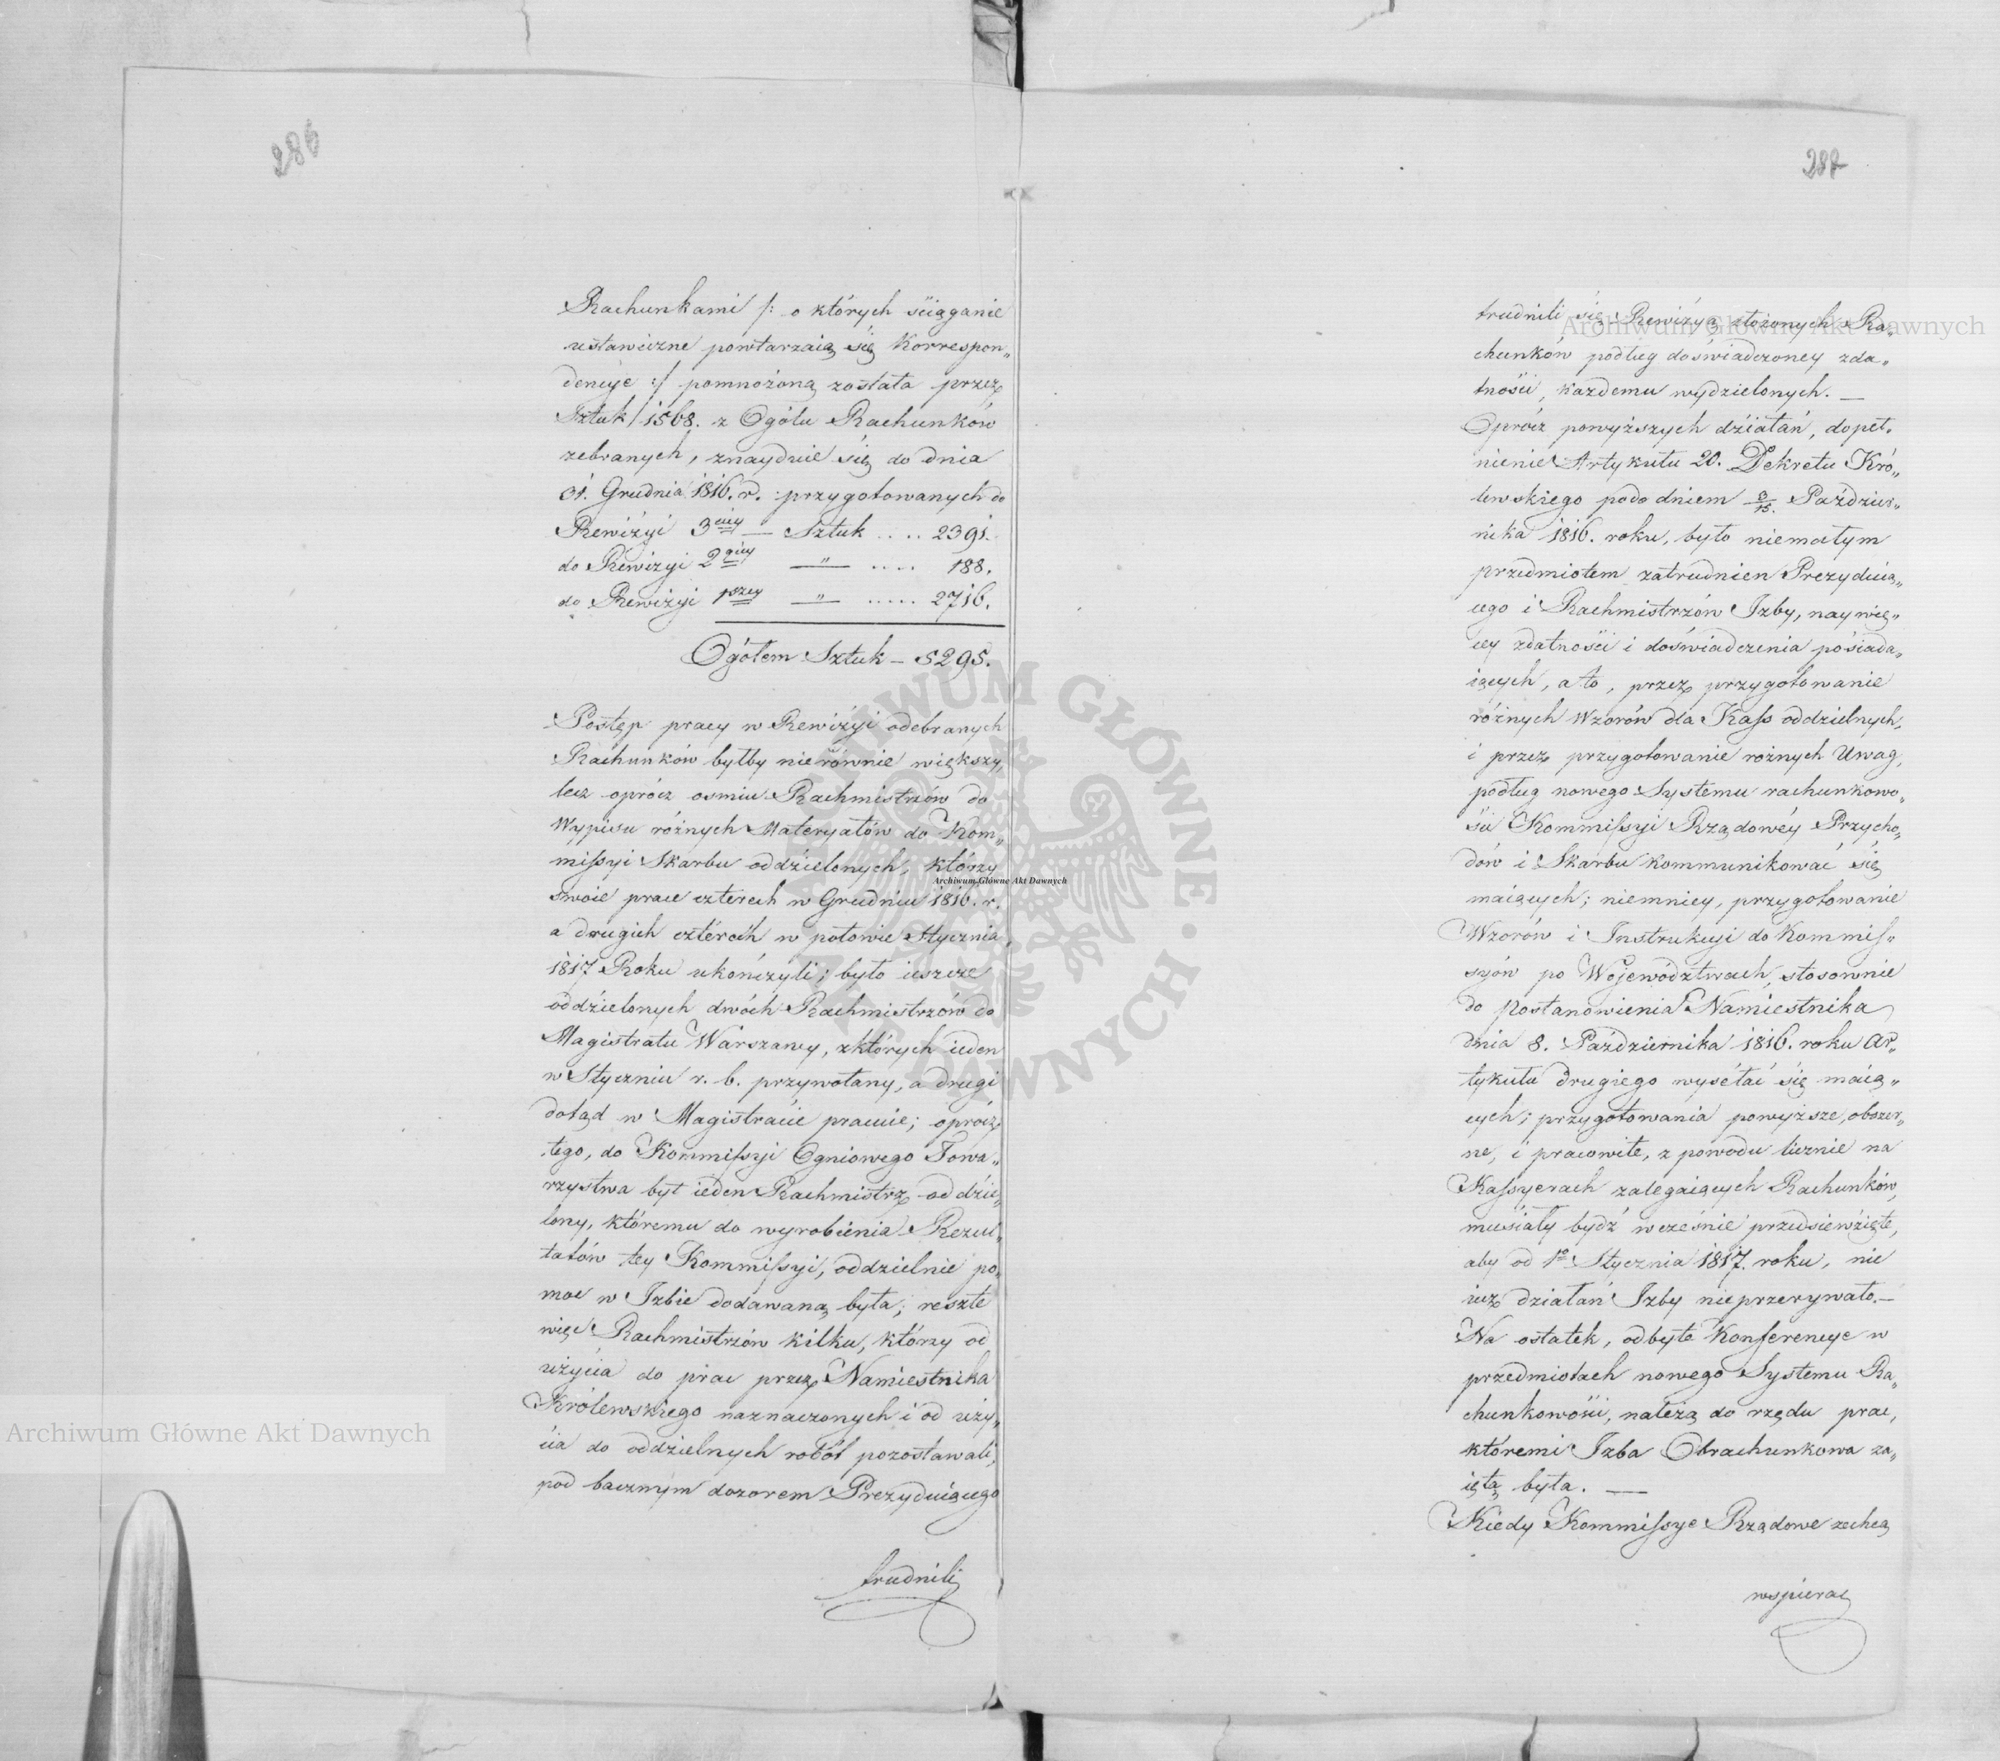 286
Rachunkami /: o których ściąganie
ustawiczne powtarzaią się Korrespon„
dencye :/ pomnożoną została przez
Sztuk 1568. z Ogółu Rachunków
zebranych, znayduie się do dnia
31. Grudnia 1816. r. przygotowanych do
Rewizyi 3ciey — Sztuk .... 2391.
do Rewizyi 2giey — „ — .... 188.
do Rewizyi 1szey — „ — ..... 2716.
Ogółem Sztuk — 5295.
Postęp pracy w Rewizyi odebranych
Rachunków byłby nierównie większy,
lecz oprócz osmiu Rachmistrzów do
Wypisu różnych Materyałów do Kom„
missyi Skarbu oddzielonych, którzy
swoie prace czterech w Grudniu 1816. r.
a drugich czterech w połowie Stycznia
1817 Roku ukończyli; było ieszcze
oddzielonych dwóch Rachmistrzów do
Magistratu Warszawy, z których ieden
w Styczniu r. b. przywołany, a drugi
dotąd w Magistracie pracuie; oprócz
tego, do Kommissyi Ogniowego Towa„
rzystwa był ieden Rachmistrz oddzie„
lony, któremu do wyrobienia Rezul„
tatów tey Kommissyi, oddzielnie po„
moc w Izbie dodawaną była; reszte
więc Rachmistrzów kilku, którzy od
użycia do prac przez Namiestnika
Królewskiego naznaczonych i od uży„
cia do oddzielnych robót pozostawali,
pod bacznym dozorem Prezyduiącego
trudnili
287
trudnili się Rewizyą złożonych Ra„
chunków podług doświadczoney zda„
tności, każdemu wydzielonych. —
Oprócz powyższych działań, dopeł„
nienie Artykułu 20. Dekretu Kró„
lewskiego podo dniem 3/15. Paździer„
nika 1816. roku, było niemałym
przedmiotem zatrudnien Prezyduią„
cego i Rachmistrzów Izby, naywię„
cey zdatności i doświadczenia posiada„
iących, a to, przez przygotowanie
różnych Wzorów dla Kass oddzielnych,
i przez przygotowanie rożnych Uwag,
podług nowego Systemu rachunkowo„
ści Kommissyi Rządowéy Przycho„
dów i Skarbu kommunikować się
maiących; niemniey, przygotowanie
Wzorów i Instrukcyi do Kommis„
syów po Województwach, stosownie
do Postanowienia Namiestnika
dnia 8. Października 1816. roku Ar„
tykułu drugiego wysełać się maią„
cych; przygotowania powyższe, obszer„
ne, i pracowite, z powodu licznie na
Kassyerach zalegaiących Rachunków,
musiały bydź wcześnie przedsiewzięte,
aby od 1o Stycznia 1817. roku, nie
iuż działań Izby nieprzerywało. —
Na ostatek, odbyte Konferencye w
przedmiotach nowego Systemu Ra„
chunkowości, należą do rzędu prac,
któremi Izba Obrachunkowa za„
iętą była. —
Kiedy Kommissye Rządowe zechcą
wspierać
Archiwum Główne Akt Dawnych
Archiwum Główne Akt Dawnych
Archiwum Główne Akt Dawnych
ARCHIWUM GŁÓWNE AKT DAWNYCH